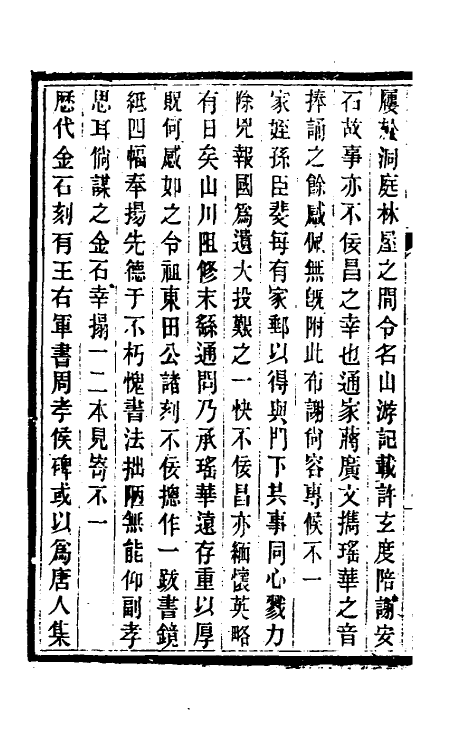 屨於洞庭林屋之間令名山游記載許玄度陪謝安
石故事亦不佞昌之幸也通家蔣廣文攜瑤華之音
捧誦之餘感佩無旣附此布謝尙容專候不一
家姪孫臣斐每有家郵以得與門下共事同心戮力
除兇報國爲遺大投艱之一快不佞昌亦緬懷英略
有日矣山川阻修末繇通問乃承瑤華遠存重以厚
貺何感如之令祖東田公諸刻不佞摠作一跋書鏡
紙四幅奉揚先德于不朽愧書法拙陋無能仰副孝
思耳倘謀之金石幸搨一二本見寄不一
歷代金石刻有王右軍書周孝侯碑或以爲唐人集